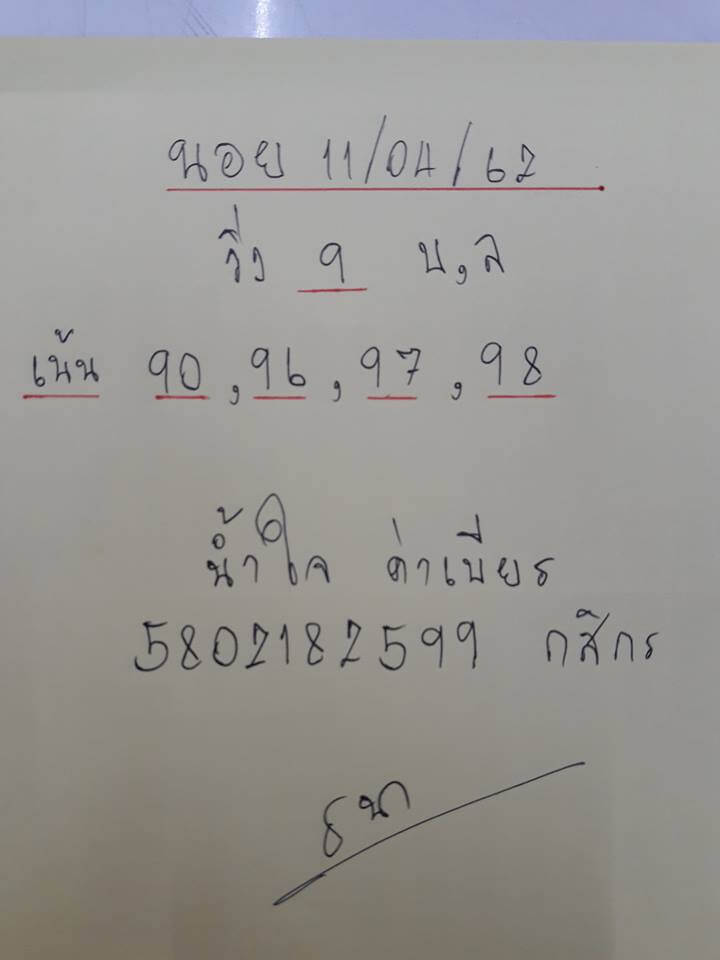 นอย 11/04/62
วิ่ง 9 บ,ล
เน้น 90,96,97,98
น้ำใจ ค่าเบียร
5802182599 กสิกร
ธนา